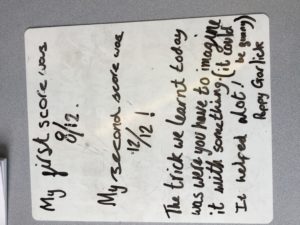 My first score was
8/12.
My second score was
12/12!
The trick we learnt today
was were you have to imagine
it with something. (it could
be gunny)
It helped alot!
Poppy Garlick